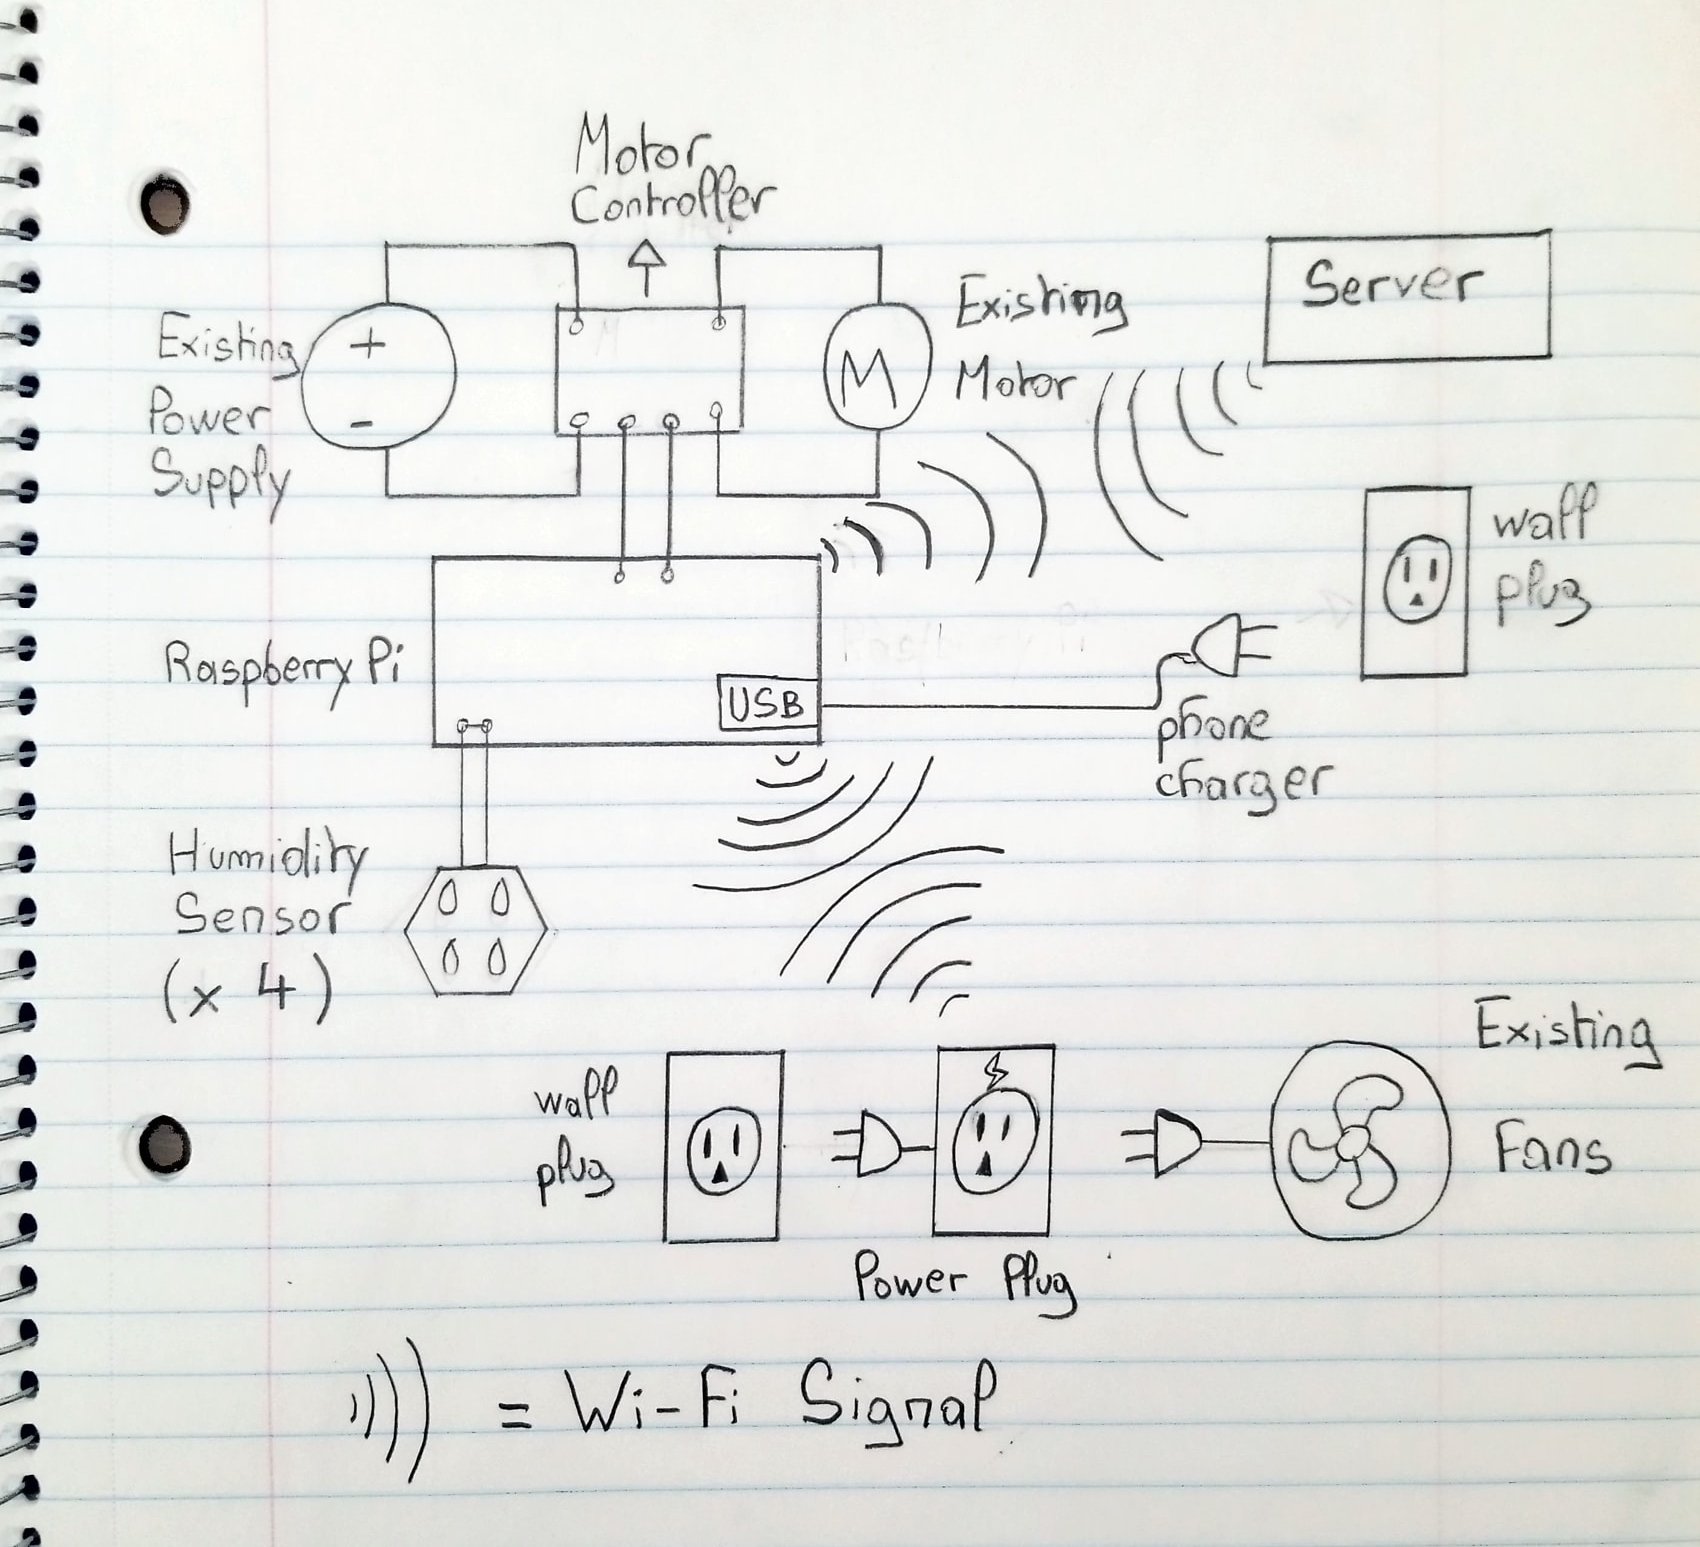 Motor
Controller
Existing
Power
Supply
+
-
M
Existing
Motor
Server
wall
plug
Raspberry Pi
USB
phone
charger
Humidity
Sensor
(x 4)
wall
plug
Power Plug
Existing
Fans
= Wi-Fi Signal